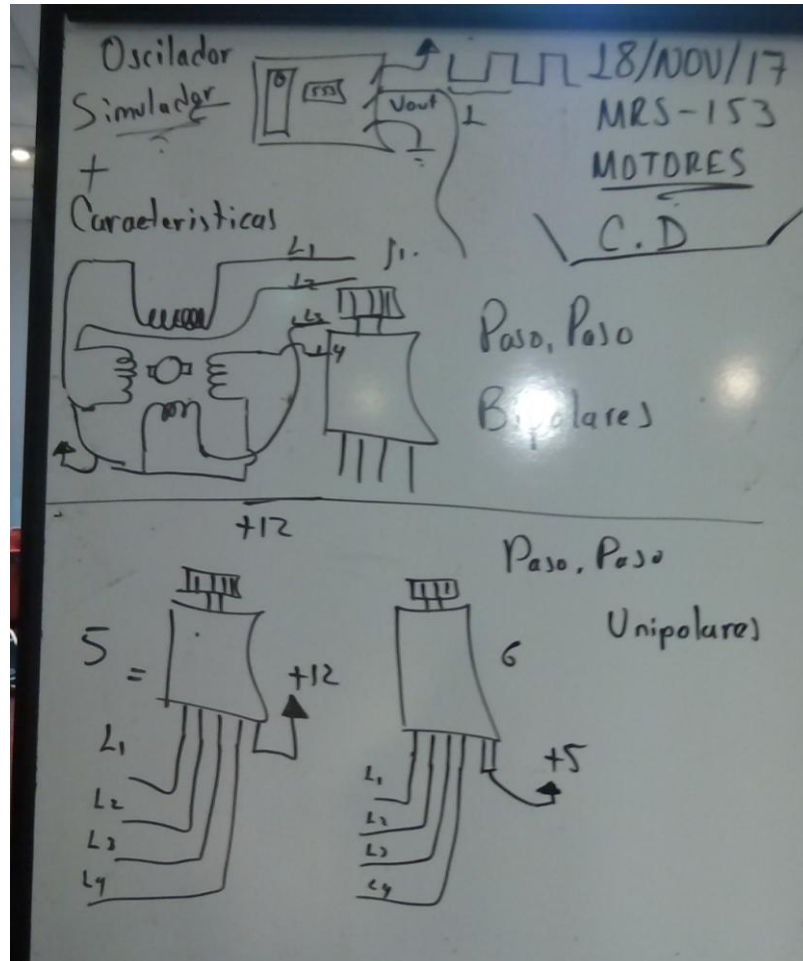 Oscilador
Simulador
+
Caracteristicas
555
Vout
18/NOV/17
MRS-153
MOTORES
C.D
L1
L2
L3
L4
Paso, Paso
Bipolares
+12
Paso, Paso
Unipolares
5 =
+12
L1
L2
L3
L4
6
+5
L1
L2
L3
L4